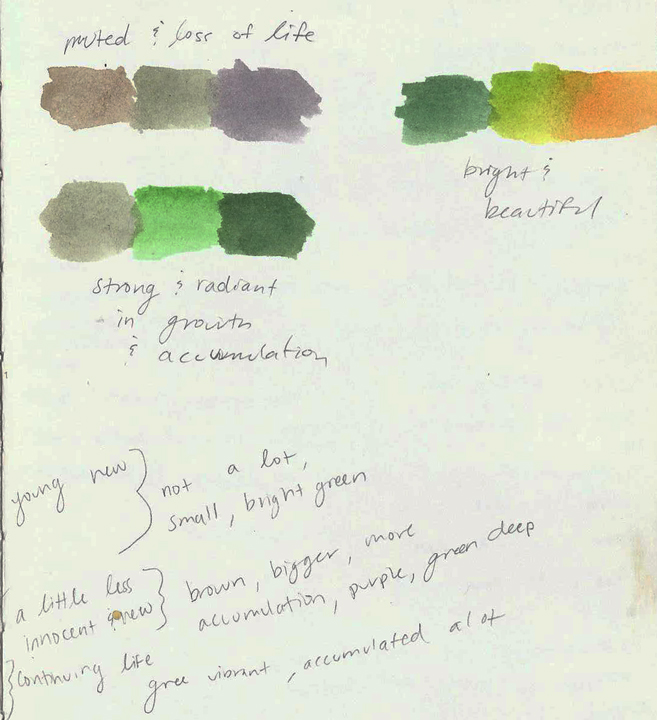 muted & loss of life
bright &
beautiful
strong & radiant
in growth
& accumulation
young new } not a lot,
small, bright green
a little less
innocent & new } brown, bigger, more
accumulation, purple, green deep
{ continuing life
gree vibrant, accumulated a lot